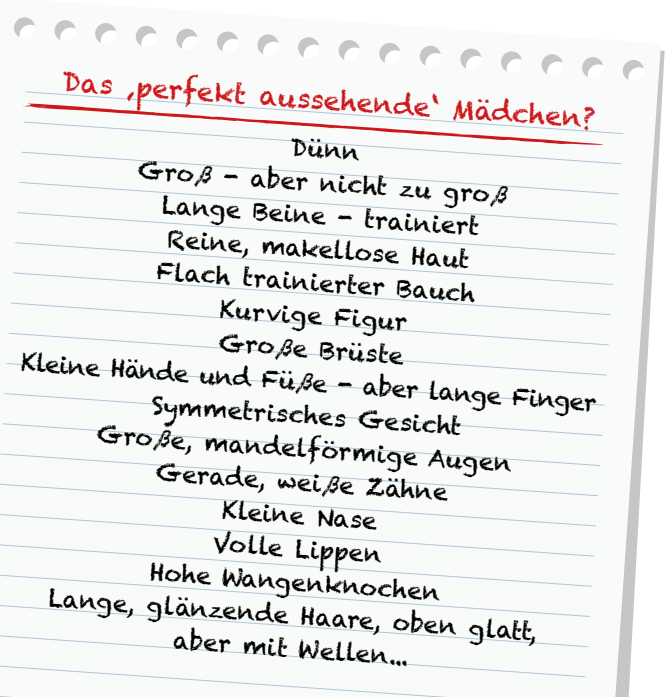 Das ‚perfekt aussehende‘ Mädchen?
Dünn
Groß – aber nicht zu groß
Lange Beine – trainiert
Reine, makellose Haut
Flach trainierter Bauch
Kurvige Figur
Große Brüste
Kleine Hände und Füße – aber lange Finger
Symmetrisches Gesicht
Große, mandelförmige Augen
Gerade, weiße Zähne
Kleine Nase
Volle Lippen
Hohe Wangenknochen
Lange, glänzende Haare, oben glatt,
aber mit Wellen...